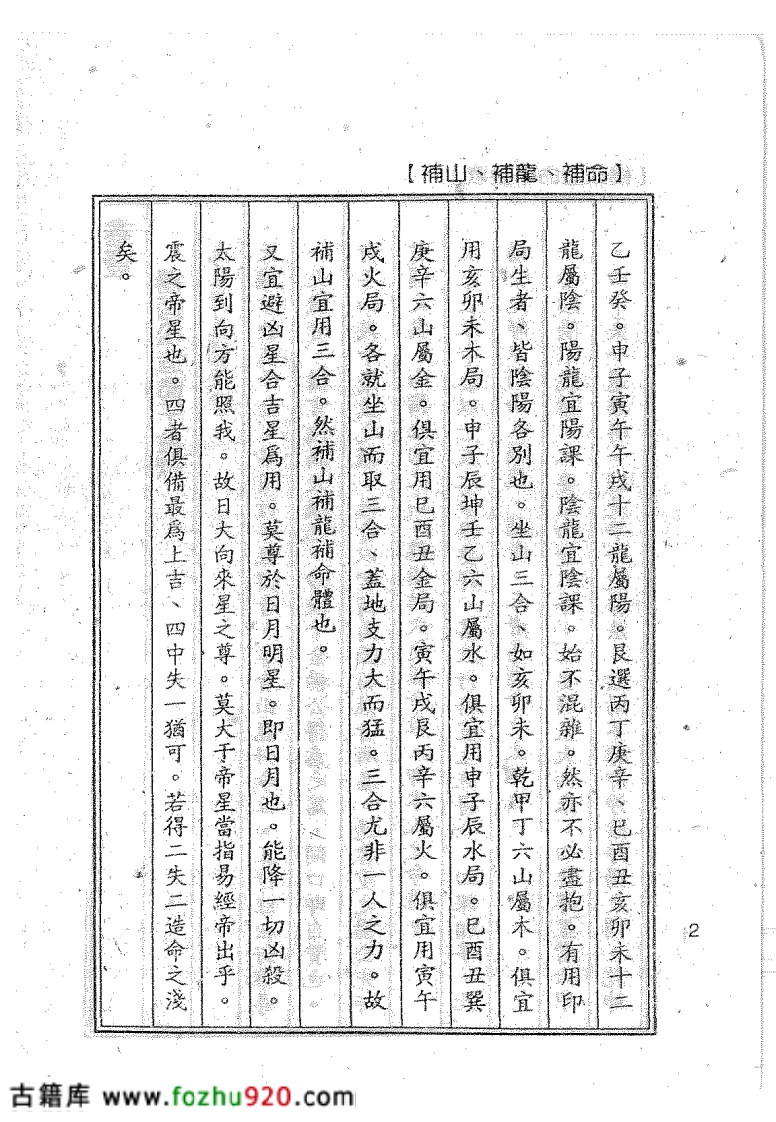 【補山、補龍、補命】
乙壬癸。申子寅午午戌十二龍屬陽。艮選丙丁庚辛、巳酉丑亥卯未十二
龍屬陰。陽龍宜陽課。陰龍宜陰課。始不混雜。然亦不必盡抱。有用印
局生者、皆陰陽各別也。坐山三合、如亥卯未。乾甲丁六山屬木。俱宜
用亥卯未木局。申子辰坤壬乙六山屬水。俱宜用申子辰水局。巳酉丑巽
庚辛六山屬金。俱宜用巳酉丑金局。寅午戌艮丙辛六屬火。俱宜用寅午
戌火局。各就坐山而取三合、蓋地支力大而猛。三合尤非一人之力。故
補山宜用三合。然補山補龍補命體也。
又宜避凶星合吉星爲用。莫尊於日月明星。即日月也。能降一切凶殺。
太陽到向方能照我。故日大向來星之尊。莫大于帝星當指易經帝出乎。
震之帝星也。四者俱備最爲上吉、四中失一猶可。若得二失二造命之淺
矣。
2
古籍库 www.fozhu920.com